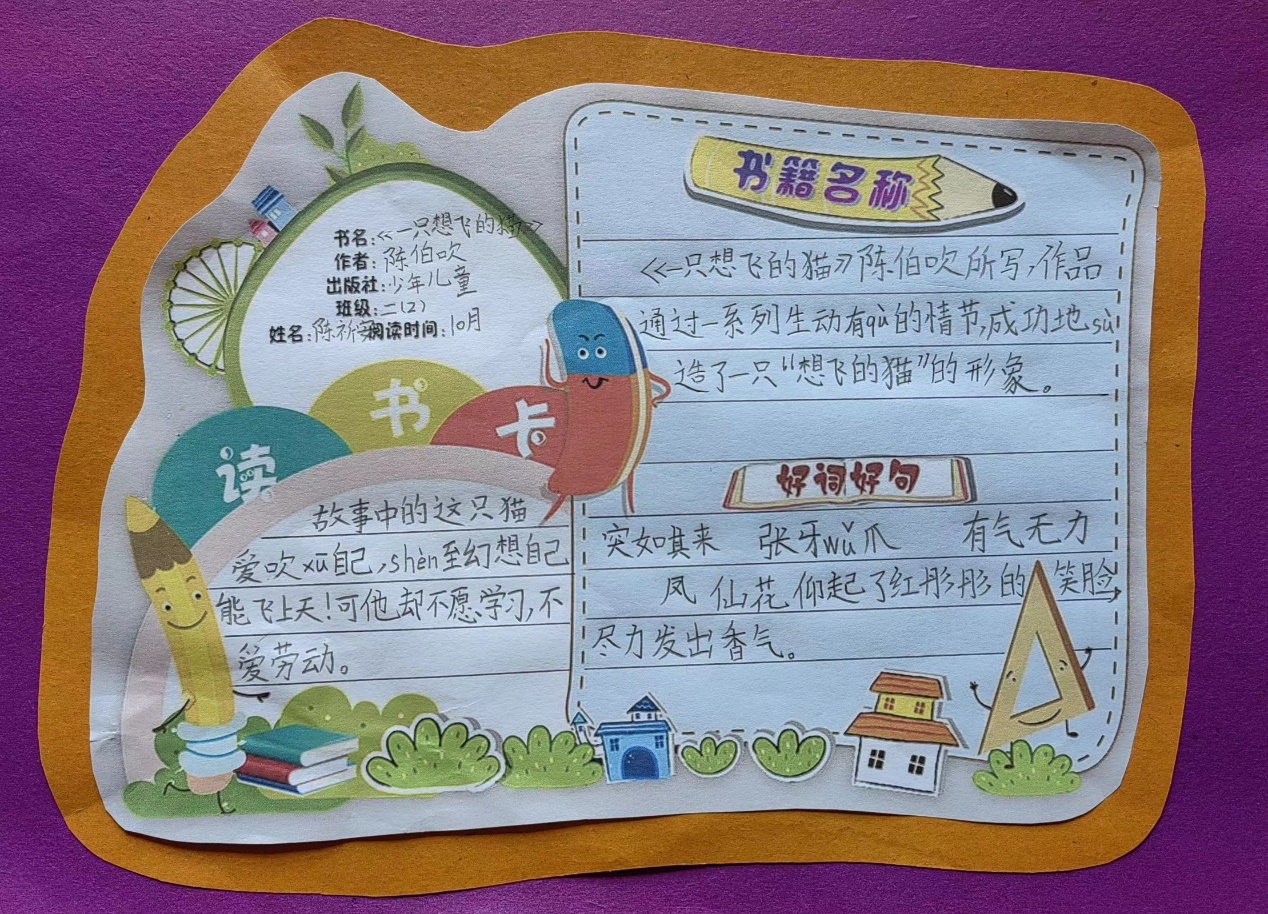 书名:《一只想飞的猫》
作者:陈伯吹
出版社:少年儿童
班级:二(2)
姓名:陈祈 阅读时间:10月
读书卡
故事中的这只猫
爱吹xū自己,shèn至幻想自己
能飞上天!可他却不愿学习,不
爱劳动。
书籍名称
《一只想飞的猫》陈伯吹所写,作品
通过一系列生动有qù的情节,成功地sù
造了一只“想飞的猫”的形象。
好词好句
突如其来 张牙wǔ爪 有气无力
凤仙花仰起了红彤彤的笑脸,
尽力发出香气。